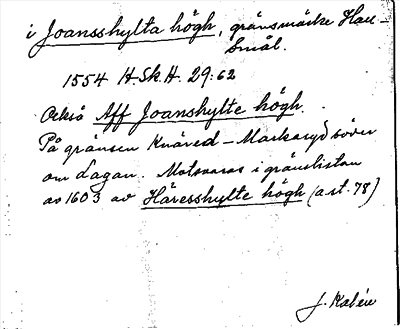 i Joansshylta högh, gränsmärke Hall-
Smål.
1554 H.Sk.H. 29:62
Också Aff Joanshylte högh.
På gränsen Knäred – Markaryd söder
om Lagan. Motsvaras i gränslistan
av 1603 av Häresshylte högh (a.st. 78)
J. Kalén